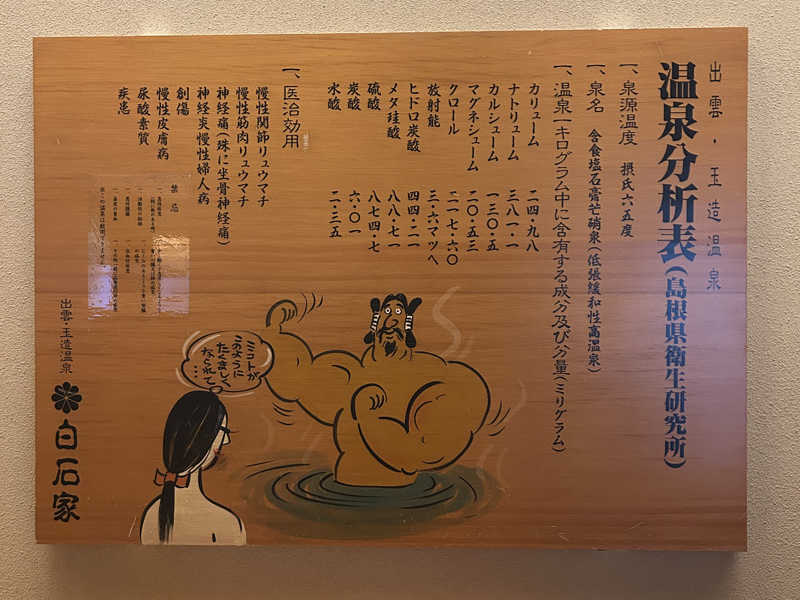 出雲・玉造温泉
温泉分析表(島根県衛生研究所)
一、泉源温度 摂氏六五度
一、泉名 含食塩石膏芒硝泉(低張緩和性高温泉)
一、温泉一キログラム中に含有する成分及び分量(ミリグラム)
カリューム 二四・九八
ナトリューム 三八一・一
カルシューム 一三〇・五
マグネシューム 二〇・五三
クロール 二一七・六〇
放射能 三・六マツヘ
ヒドロ炭酸 四四・二一
メタ珪酸 八八・七一
硫酸 八七四・七
炭酸 六・〇一
水酸 二・三五
一、医治効用
慢性関節リュウマチ
慢性筋肉リュウマチ
神経痛(殊に坐骨神経痛)
神経炎慢性婦人病
創傷
慢性皮膚病
尿酸素質
疾患
禁忌
ミコトが
このように
たくましく
なられて
・・・
出雲・玉造温泉
白石家